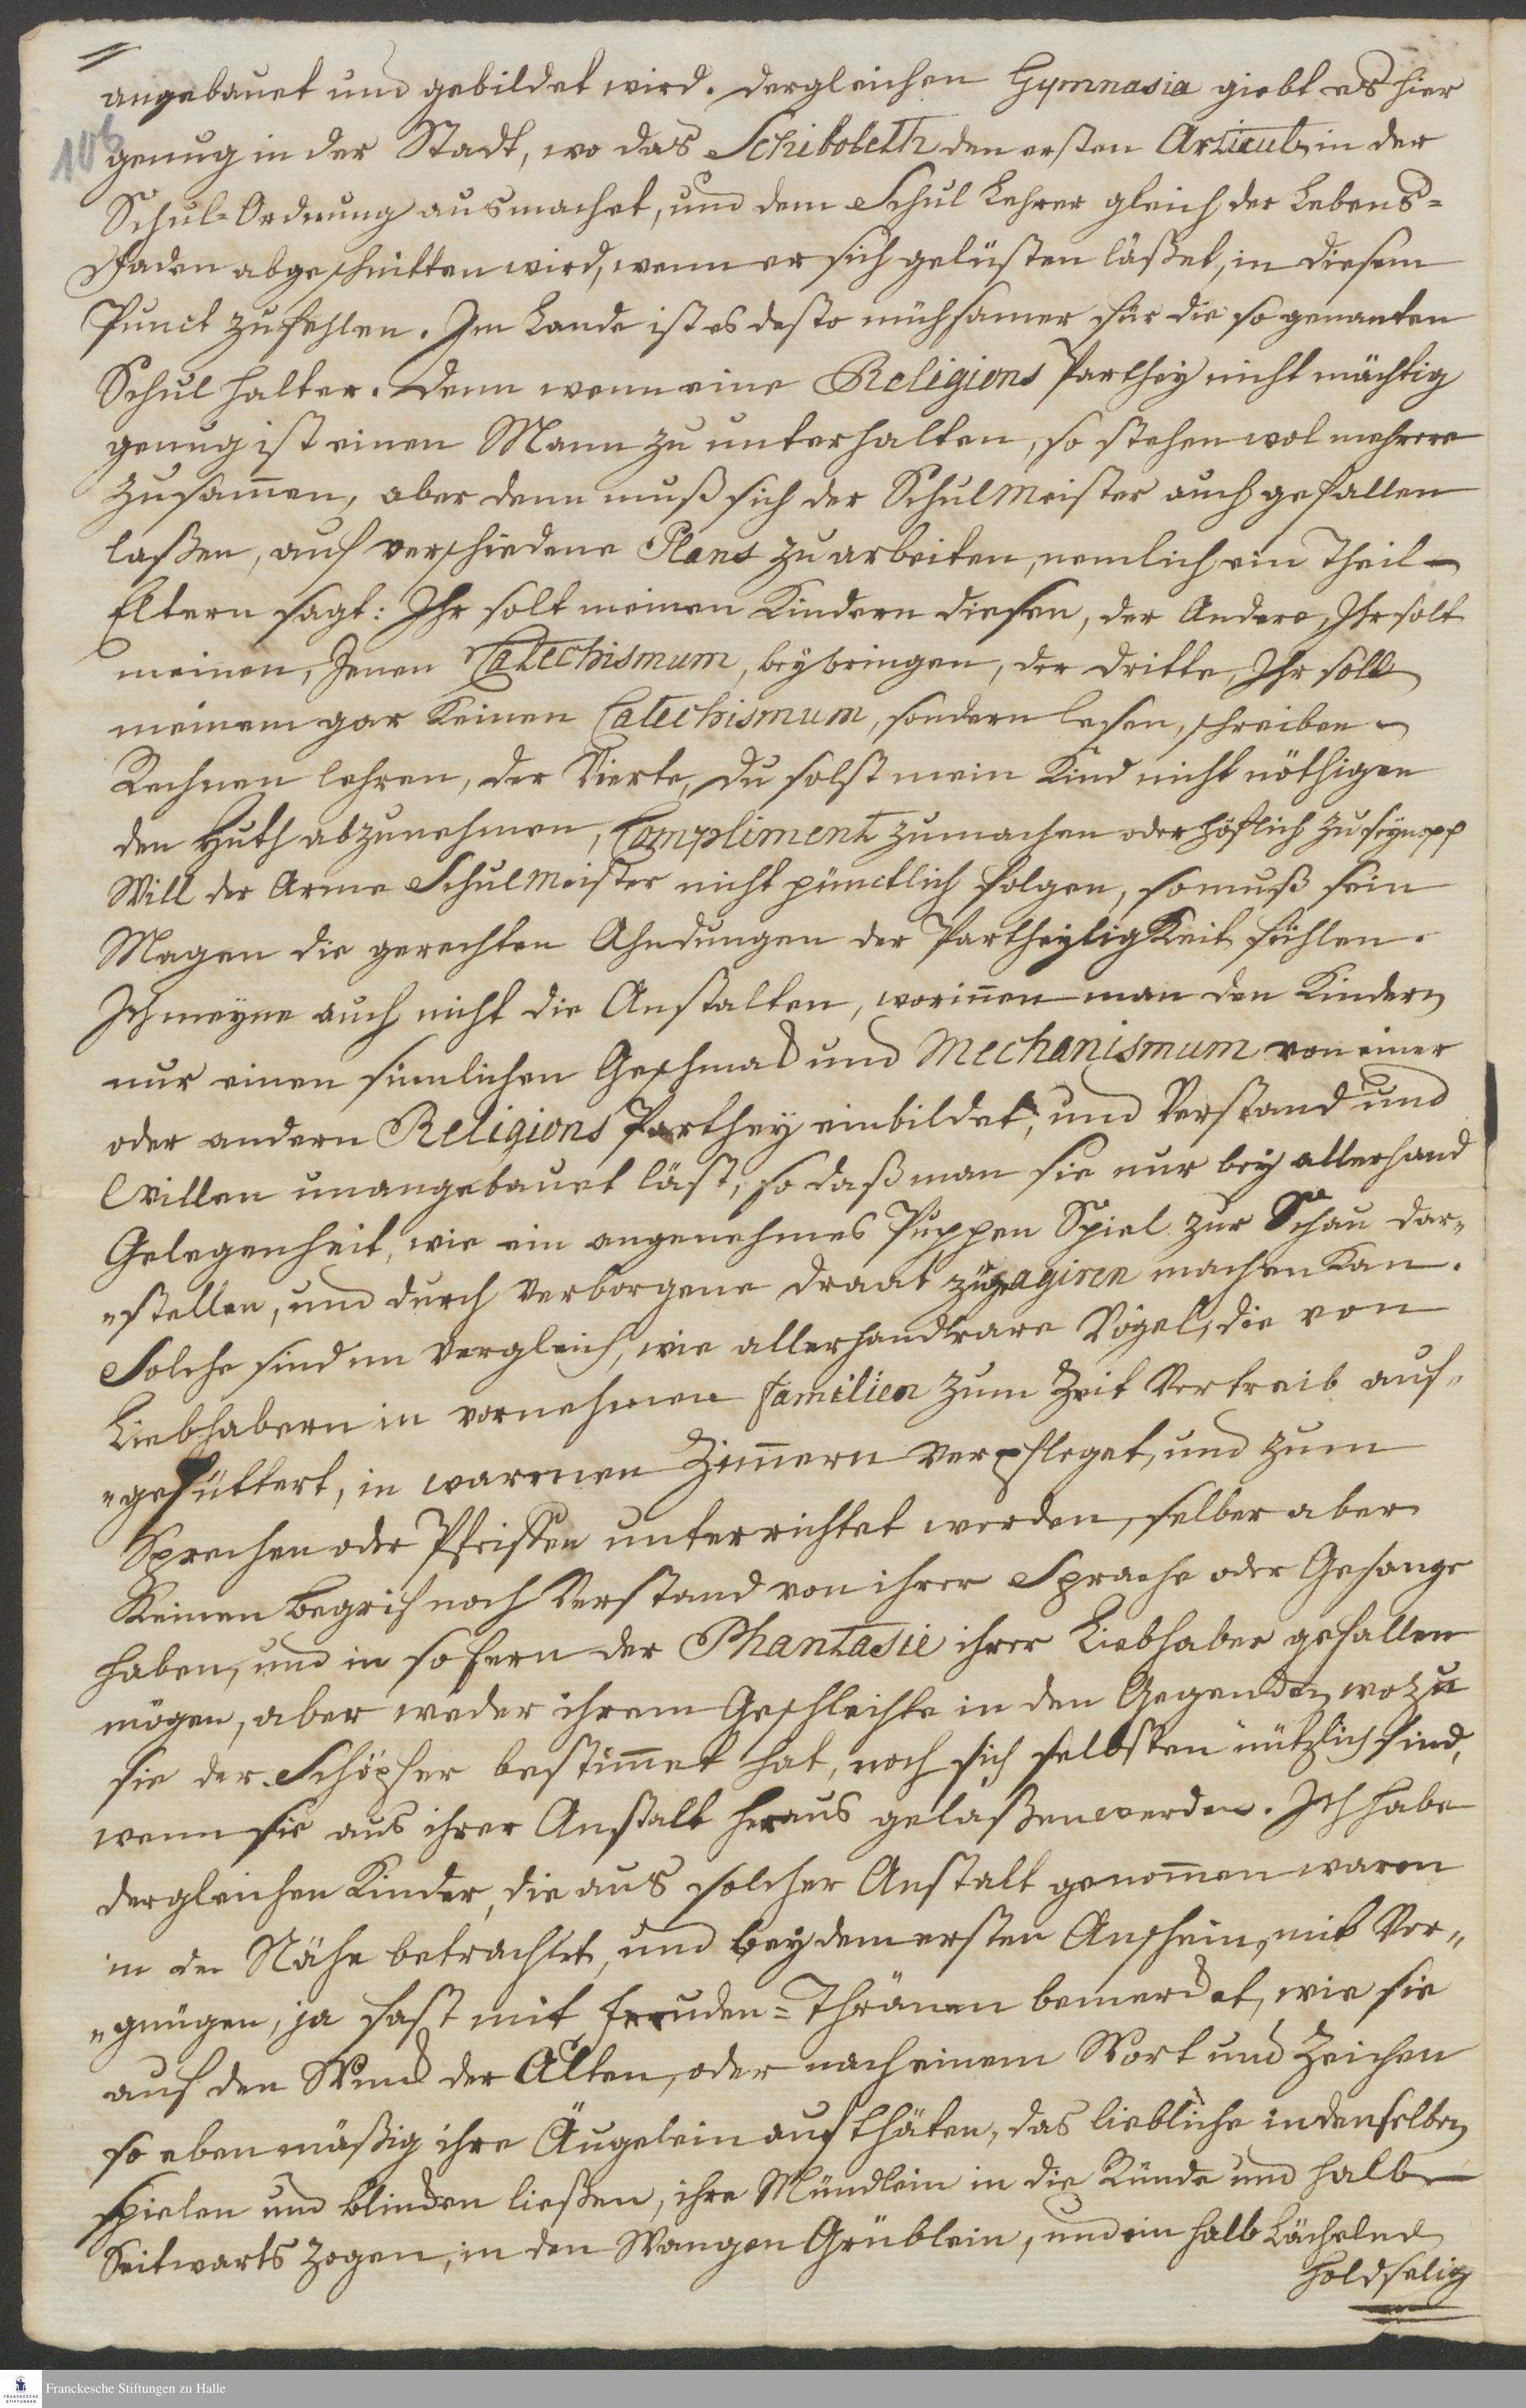 angebauet und gebildet wird. dergleichen Gymnasia giebt es hier
106
genug in der Stadt, wo das Schiboleth den ersten Articul in der
Schul-Ordnung ausmachet, und dem Schul Lehrer gleich der Lebens=
Faden abgeschnitten wird, wenn er sich gelüsten läßet, in diesem
Punct zu fehlen. Im Lande ist es desto mühsamer für die so genanten
Schul halter. Denn wenn eine Religions Parthey nicht mächtig
genug ist einen Mann zu unterhalten, so stehen wol mehrere
zusam̄en, aber denn muß sich der Schul Meister auch gefallen
laßen, auf verschiedene Plans zu arbeiten, nemlich ein Theil
Eltern sagt: Ihr solt meinen Kindern diesen, der Andere, Ihr solt
meinen, Jenen Catechismum, beybringen, der dritte, Ihr solt
meinem gar keinen Catechismum, sondern lesen, schreiben
Rechnen lehren, der Vierte, du solst mein Kind nicht nöthigen
den Huth abzunehmen, Compliment zu machen oder höflich zu seyn pp
Will der Arme Schul Meister nicht pünctlich folgen, so muß sein
Magen die gerechten Ahndungen der Partheyligkeit fühlen.
Ich meyne auch nicht die Anstalten, worin̄en man den Kindern
nur einen sinnlichen Geschmack und Mechanismum von einer
oder andern Religions Parthey einbildet, und Verstand und
Willen unangebauet läst, so daß man sie nur bey allerhand
Gelegenheit, wie ein angenehmes Puppen Spiel zur Schau dar„
„stellen, und durch verborgene draat züge agiren machen kan.
Solche sind im Vergleich, wie allerhand rare Vögel, die von
Liebhabern in vornehmen Familien zum Zeit Vertreib auf„
„gefüttert, in warmen Zim̄ern verpfleget, und zum
Sprechen oder Pfeiffen unterrichtet werden, selber aber
keinen Begrif noch Verstand von ihrer Sprache oder Gesange
haben, und in so fern der Phantasie ihrer Liebhaber gefallen
mögen, aber weder ihrem Geschlechte in den Gegenden, wozu
sie der Schöpfer bestim̄et hat, noch sich selbsten nützlich sind,
wenn sie aus ihrer Anstalt heraus gelaßen werden. Ich habe
dergleichen Kinder, die aus solcher Anstalt genom̄en waren
in der Nähe betrachtet, und bey dem ersten Anschein, mit Ver„
„gnügen, ja fast mit freuden=Thränen bemercket, wie sie
auf den Winck der Alten, oder nach einem Wort und Zeichen
so eben mäßig ihre Äugelein auf thäten, das liebliche in denselben
spielen und blincken ließen, ihre Mündlein in die Ründe und halb
Seitwarts zogen, in den Wangen Grüblein, und ein halb Lächelnd
holdselig
Franckesche Stiftungen zu Halle